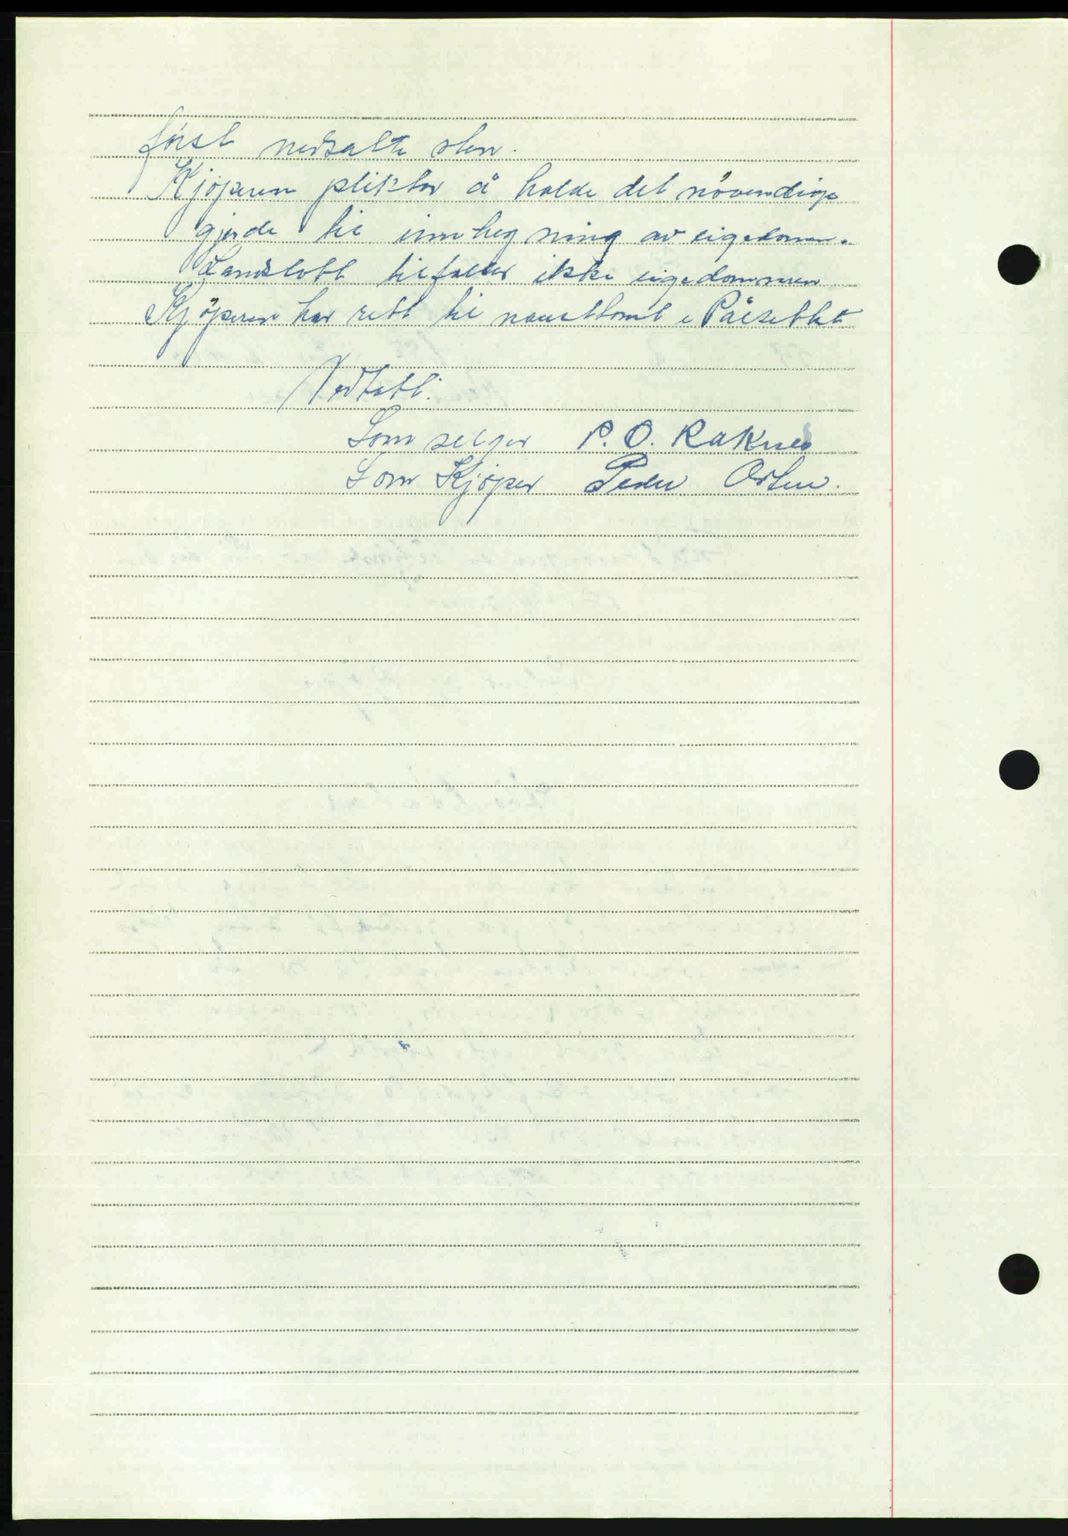 først nedsatte sten.
Kjøperen plikter å halde det nøvendige
gjerde til innhegning av eigedomen.
Landslott tilfaller ikke eigedommen
Kjöperen har rett til nausttomt i
Vedtatt:
Som selger P. O. Raknes
Som Kjøper Peder